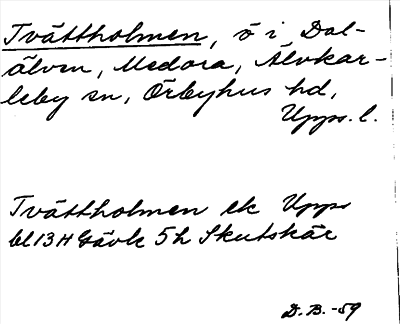 Tvättholmen, ö i Dal-
älven, Medora, Älvkar-
leby sn, Örbyhus hd,
Upps. l.
Tvättholmen ek Upps
bl 13 H Gävle 5 h Skutskär
D. B. -59